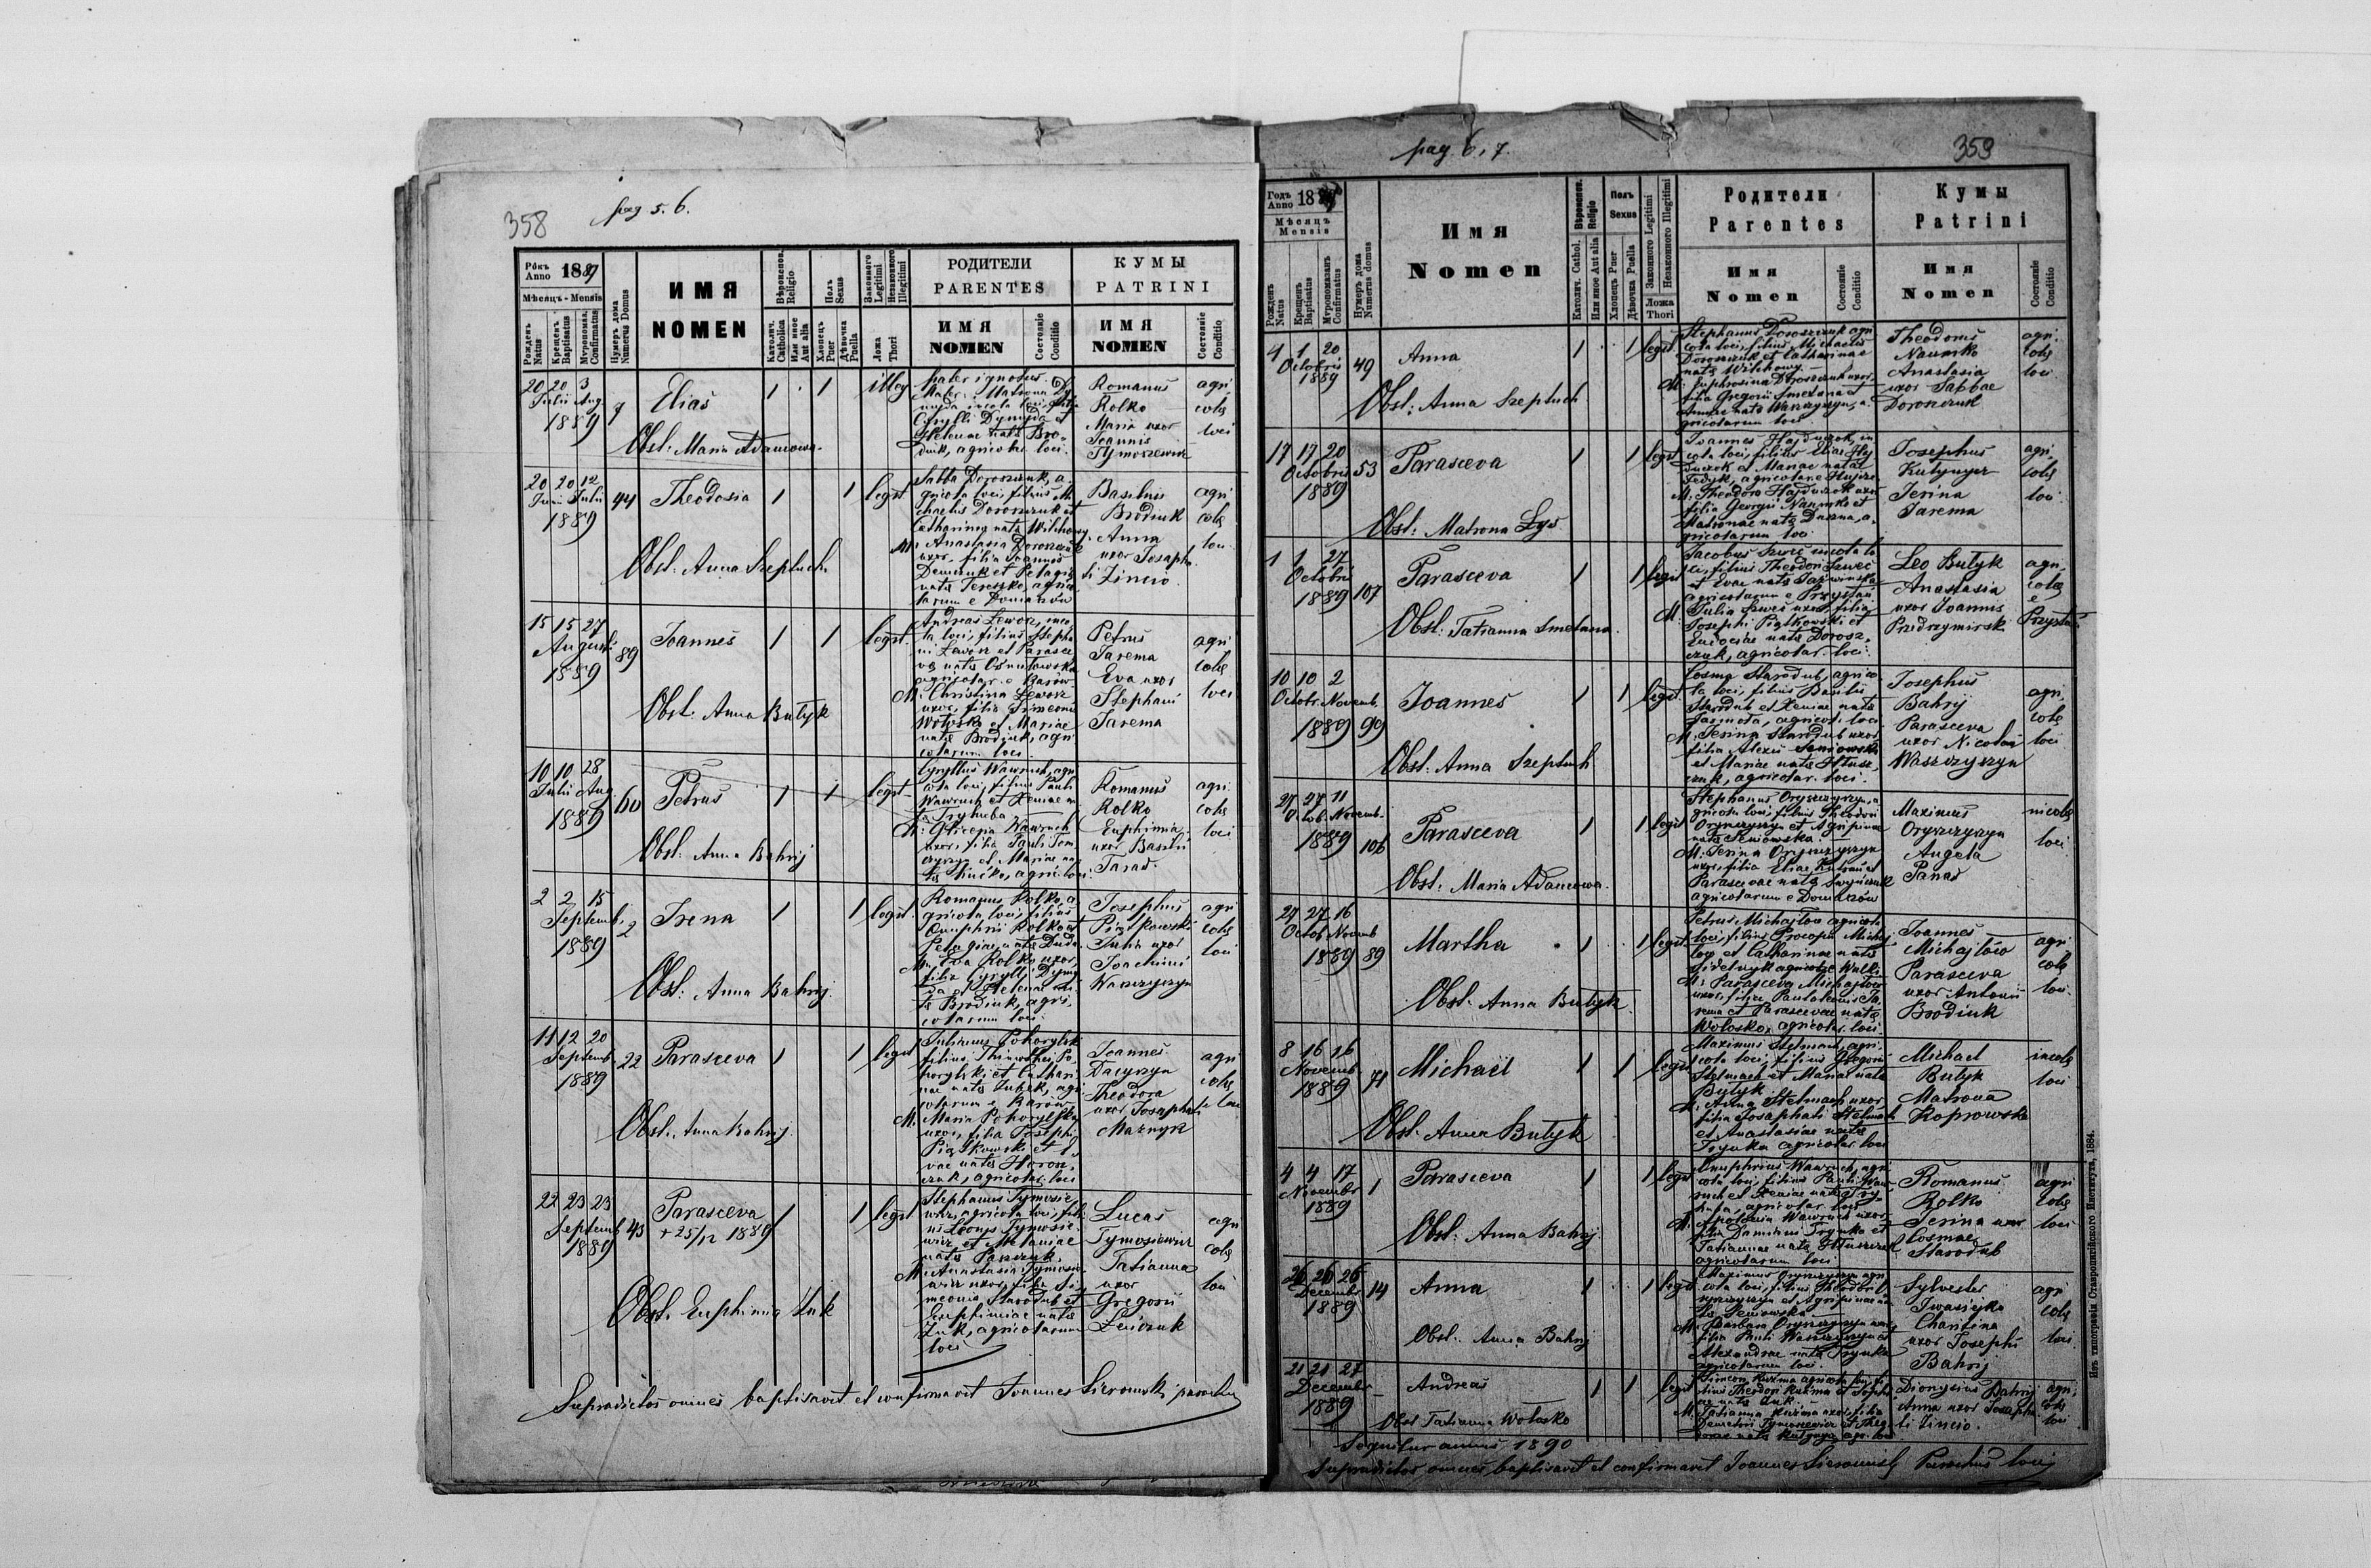 358
pag 5. 6.
Рокъ Anno 1889
Мѣсяць - Mensis
Рожденъ Natus
Крещенъ Baptisatus
Мѵропомаз. Confirmatus
Нумеръ дома Numerus Domus
ИМЯ
NOMEN
Вѣроиспов. Religio
Католич. Catholica
Или иное Aut alia
Полъ Sexus
Хлопецъ Puer
Дѣвочка Puella
Законного Legitimi
Незаконного Illegitimi
Ложа Thori
РОДИТЕЛИ
PARENTES
ИМЯ
NOMEN
Состояніе Conditio
КУМЫ
PATRINI
ИМЯ
NOMEN
Состояніе Conditio
20 20 3
Julii Aug.
1889
9
Elias
1 1
illeg
Obst. Maria Adamowa.
pater ignotus.
Mater: Matrona Dy
Cyrilli
Helenae nata Bro-
diuk, agricolae loci.
Romanus
Rolko
Maria uxor
Joannis
Tymoszewicz
agri
colae
loci
20 20 12
Junii Julii
1889
44
Theodosia
1 1
legit
Obst. Anna Szeptuch
Sabba Doroszczuk, a-
gricola loci, filius Mi
chaelis Doroszczuk et
Catharinae nata Wilchowy
M: Anastasia Doroszczuk
uxor, filia Joannis
Demczuk et Pelagiae
nata Tereszko, agrico
larum e Domaszów
Basilius
Brodiuk
Anna
uxor Josapha
ti Zincio
agri
colae
loci
15 15 27
Augusti
1889
89
Joannes
1 1
legit.
Obst: Anna Butyk
Andreas Leworz, inco
la loci, filius Stepha
ni Leworz et Parasce
vae nata
agricolar. e Karów
M: Christina Leworz
uxor, filia Simeonis
Wołosko et Mariae
nata Brodiuk, agri
colarum loci
Petrus
Jarema
Eva uxor
Stephani
Jarema
agri
colae
loci
10 10 28
Julii Aug.
1889
60
Petrus
1 1
legit
Obst: Anna Bahrij
Cyryllus Wawruch, agri
cola loci, filius Pauli
Wawruch et Xeniae na
ta Tryhuba
M: Gliceria Wawruch
uxor, filia Pauli
et Mariae na
agric. loci
Romanus
Rolko
Euphimia
uxor Basilii
Taras.
agri
colae
loci
2 2 15
Septemb.
1889
2
Irena
1 1
legit.
Obst: Anna Bahrij.
Romanus Rolko, a
gricola loci, filius
Onuphrii Rolko et
Pelagiae, nata Duda
M: Eva Rolko uxor,
filia Cyrylli
et Helenae na
ta Brodiuk, agri
colarum loci.
Josephus
Piątkowski
Julia uxor
Joachimi
Waszczyszyn
agri
colae
loci
11 12 20
Septemb
1889
22
Parasceva
1 1
legit
Obst: Anna Bahrij.
Julianus Pohorylski
filius Thimothei Po
horylski et Cathari
nae nata agri
colarum e Karów
M: Maria Pohorylska
uxor, filia Josephi
Piątkowski et E
vae nata Horosz
czuk, agricolar. loci
Joannes
Daczyszyn
Theodora
uxor Josaphati
Maznyk
agri
colae
loci
22 23 23
Septemb
1889
43
Parasceva
+ 25/12 1889
1 1
legit
Obst. Euphimia Żuk
Stephanus Tymosie
wicz, agricola loci, fili
us Leonis Tymosie
wicz et Melaniae
nata Panczuk.
M: Anastasia Tymosie
wicz uxor, filia Si
meonis Starodub et
Euphimiae nata
Żuk, agricolarum
loci
Lucas
Tymosiewicz
Tatianna
uxor
Gregorii
agri
colae
loci
Supradictos omnes baptisavit et confirmavit Joannes Sieromski parochus
pag. 6, 7.
359
Годъ Anno 1889
Мѣсяцъ Mensis
Рожденъ Natus
Крещенъ Baptisatus
Мѵропомазанъ Confirmatus
Нумеръ дома Numerus domus
Имя
Nomen
Вѣроиспов. Religio
Католич. Cathol.
Или иное Aut alia
Полъ Sexus
Хлопецъ Puer
Дѣвочка Puella
Законного Legitimi
Незаконного Illegitimi
Ложа Thori
Родители
Parentes
Имя
Nomen
Состояніе Conditio
Кумы
Patrini
Имя
Nomen
Состояніе Conditio
1 20
Octobris
1889
49
Anna
1 1
legit
Obst: Anna Szeptuch
Stephanus Doroszczuk agri
cola loci, filius Michaelis
Doroszczuk et Catharinae
nata Wilchowy.
M: Euphrosina Doroszczuk uxor,
filia Gregorii Smetana et
Annae nata Waszczyszyn, a
gricolarum loci
Theodorus
Naumko
Anastasia
uxor Sabbae
Doroszczuk
agri
colae
loci
17 17 20
Octobris
1889
53
Parasceva
1 1
legit
Obst: Matrona Lys
Joannes Hajduczok, in
cola loci, filius Eliae Haj
duczok et Mariae nata
Fedyk, agricolar. e
M: Theodora Hajduczok uxor
filia Georgii Naumko et
Matronae nata Duma, a
gricolarum loci
Josephus
Irina
Jarema
agri
colae
loci
1 1 27
Octobri
1889
107
Parasceva
1 1
legit
Obst: Tatianna Smetana.
Jacobus Szwec incola lo
ci, filius Theodori Szwec
et Evae nata Jaźwinska
agricolarum e Przystań
M: Julia Szwec uxor, filia
Josephi Piątkowski et
Eudociae nata Dorosz
czuk, agricolar. loci.
Leo Butyk
Anastasia
uxor Joannis
Przedrzymirski
agri
colae
e
Przystań
10 10 2
Octobr. Novemb.
1889
99
Joannes
1 1
legit
Obst: Anna Szeptuch
Cosma Starodub, agrico
la loci, filius Basilii
Starodub et Xeniae nata
agricol. loci
M: Irina Starodub uxor
filia Alexii
et Mariae nata Hłusz
czuk, agricolar. loci.
Josephus
Bahrij
Parasceva
uxor Nicolai
Waszczyszyn
agri
colae
loci
27 27 11
Octob. Novemb.
1889
106
Parasceva
1 1
legit
Obst: Maria Adamowa.
Stephanus Oryszczyszyn, a
gricola loci, filius Theodori
Oryszczyszyn et Agripinae
nata Seniowska
M: Irina Oryszczyszyn
uxor, filia Eliae et
Parascevae nata
agricolarum e Domaszów
Maximus
Oryszczyszyn
Angela
Panas
incolae
loci
27 27 16
Octob. Novemb
1889
89
Martha
1 1
legit
Obst. Anna Butyk
Petrus Michajłow agricola
loci, filius Procopii Michaj
low et Catharinae nata
Sidelnyk agricolae
M: Parasceva Michajłow
uxor, filia Ja
rema et Parascevae nata
Wołosko, agricolar. loci.
Joannes
Michajłow
Parasceva
uxor Antonii
Brodiuk
agri
colae
loci
8 16 26
Novemb.
1889
71
Michael
1 1
legit
Obst. Anna Butyk
Maximus Stelmach, agri
cola loci, filius Gregorii
Stelmach et Mariae nata
Butyk
M. Anna Stelmach uxor
filia Josaphati Stelmach
et Anastasiae nata
Trynka agricolar. loci
Michael
Butyk
Matrona
Koprowska
incolae
loci
4 4 17
Novembr
1889
1
Parasceva
1 1
legit
Obst. Anna Bahrij.
Onuphrius Wawruch, agri
cola loci, filius Pauli Waw
ruch et Xeniae nata Try
huba, agricolar. loci
M. Apolonia Wawruch uxor
filia Damiani Trynka et
Tatiannae nata Hłuszczuk
agricolarum loci
Romanus
Rolko
Irina uxor
Cosmae
Starodub
agri
colae
loci
26 26 26
Decembr
1889
14
Anna
1 1
legit
Obst. Anna Bahrij
Maximus Oryszczyszyn agri
cola loci, filius Theodori O
ryszczyszyn et Agripinae na
ta Seniowska
M: Barbara Oryszczyszyn uxor
filia Pauli Waszczyszyn et
Alexandrae nata Trynka
agricolarum loci.
Sylvester
Iwasiejko
Charitina
uxor Josephi
Bahrij
agri
colae
loci
21 21 27
Decembr
1889
Andreas
1 1
legit
Obst Tatianna Wołosko
Simeon Kuzma agricola loci, fi
lius Theodori Kuzma et Sophi
ae nata Żuk.
M. Tatianna Kuzma uxor, filia
Demetrii Tymoszewicz et Theo
dorae nata agr. loci
Dionysius Bahrij
Anna uxor Josapha
ti Zincio.
agri
colae
loci
Sequitur annus 1890
Supradictos omnes baptisavit et confirmavit Joannes Sieromski Parochus loci
Изъ типографіи Ставропигійского Института, 1884.